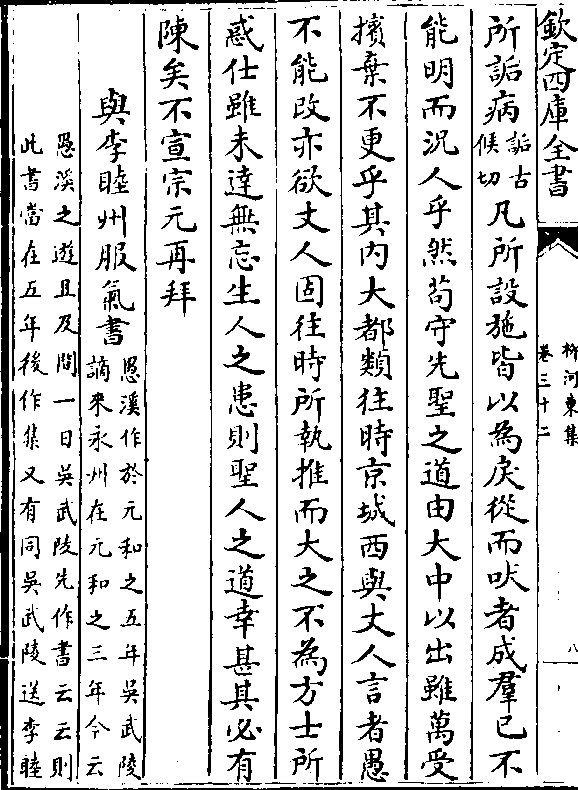 欽定四庫全書
柳河東集
卷三十二
八
所詬病詬古候切凡所設施皆以為戾從而吠者成羣已不
能明而況人乎然苟守先聖之道由大中以出雖萬受
擯棄不更乎其內大都類往時京城西與丈人言者愚
不能改亦欲丈人固往時所執推而大之不為方士所
惑仕雖未達無忘生人之患則聖人之道幸甚其必有
陳矣不宣宗元再拜
與李睦州服氣書愚溪作於元和之五年吳武陵
謫來永州在元和之三年今云
愚溪之遊且及問一日吳武陵先作書云云則
此書當在五年後作集又有同吳武陵送李睦